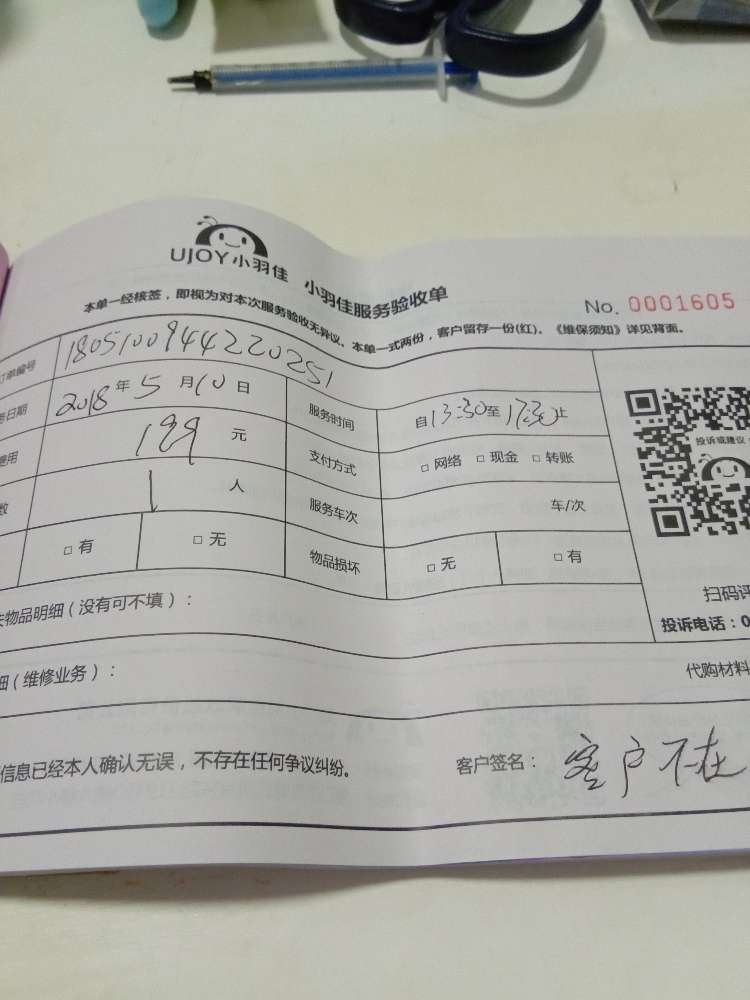 UJOY小羽佳 小羽佳服务验收单
本单一经核签，即视为对本次服务验收无异议。本单一式两份，客户留存一份(红)。《维保须知》详见背面。
No. 0001605
订单编号 1805100944220251
务日期 2018年5月10日 服务时间 自13:30至17:30止
费用 199元 支付方式 □ 网络 □ 现金 □ 转账
数 1人 服务车次 车/次
□ 有 □ 无 物品损坏 □ 无 □ 有
投诉或建议
扫码评
投诉电话：0
失物品明细（没有可不填）：
细（维修业务）： 代购材料
信息已经本人确认无误，不存在任何争议纠纷。 客户签名：客户不在